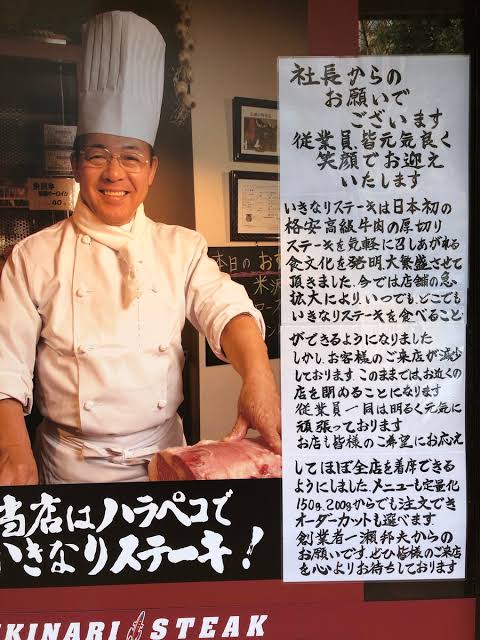 社長からの
お願いで
ございます
従業員、皆元気良く
笑顔でお迎え
いたします
いきなりステーキは日本初の
格安高級牛肉の厚切り
ステーキを気軽に召しあがれる
食文化を発明、大繁盛させて
頂きました。今では店舗の急
拡大により、いつでも、どこでも
いきなりステーキを食べること
ができるようになりました
しかし、お客様のご来店が減少
しております。このままではお近くの
店を閉めることになります
従業員一同は明るく元気に
頑張っております
お店も皆様のご希望にお応え
してほぼ全店を着席できる
ようにしました。メニューも定量化
150g、200gからでも注文でき
オーダーカットも選べます
創業者一瀬邦夫からの
お願いです。ぜひ皆様のご来店
を心よりお待ちしております
本日のおす
米沢
ロース
40
当店はハラペコで
いきなりステーキ!
IKINARI STEAK